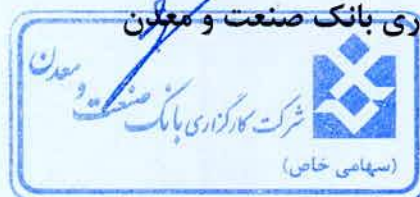 ری بانک صنعت و معدن
شرکت کارگزاری بانک صنعت و معدن
(سهامی خاص)